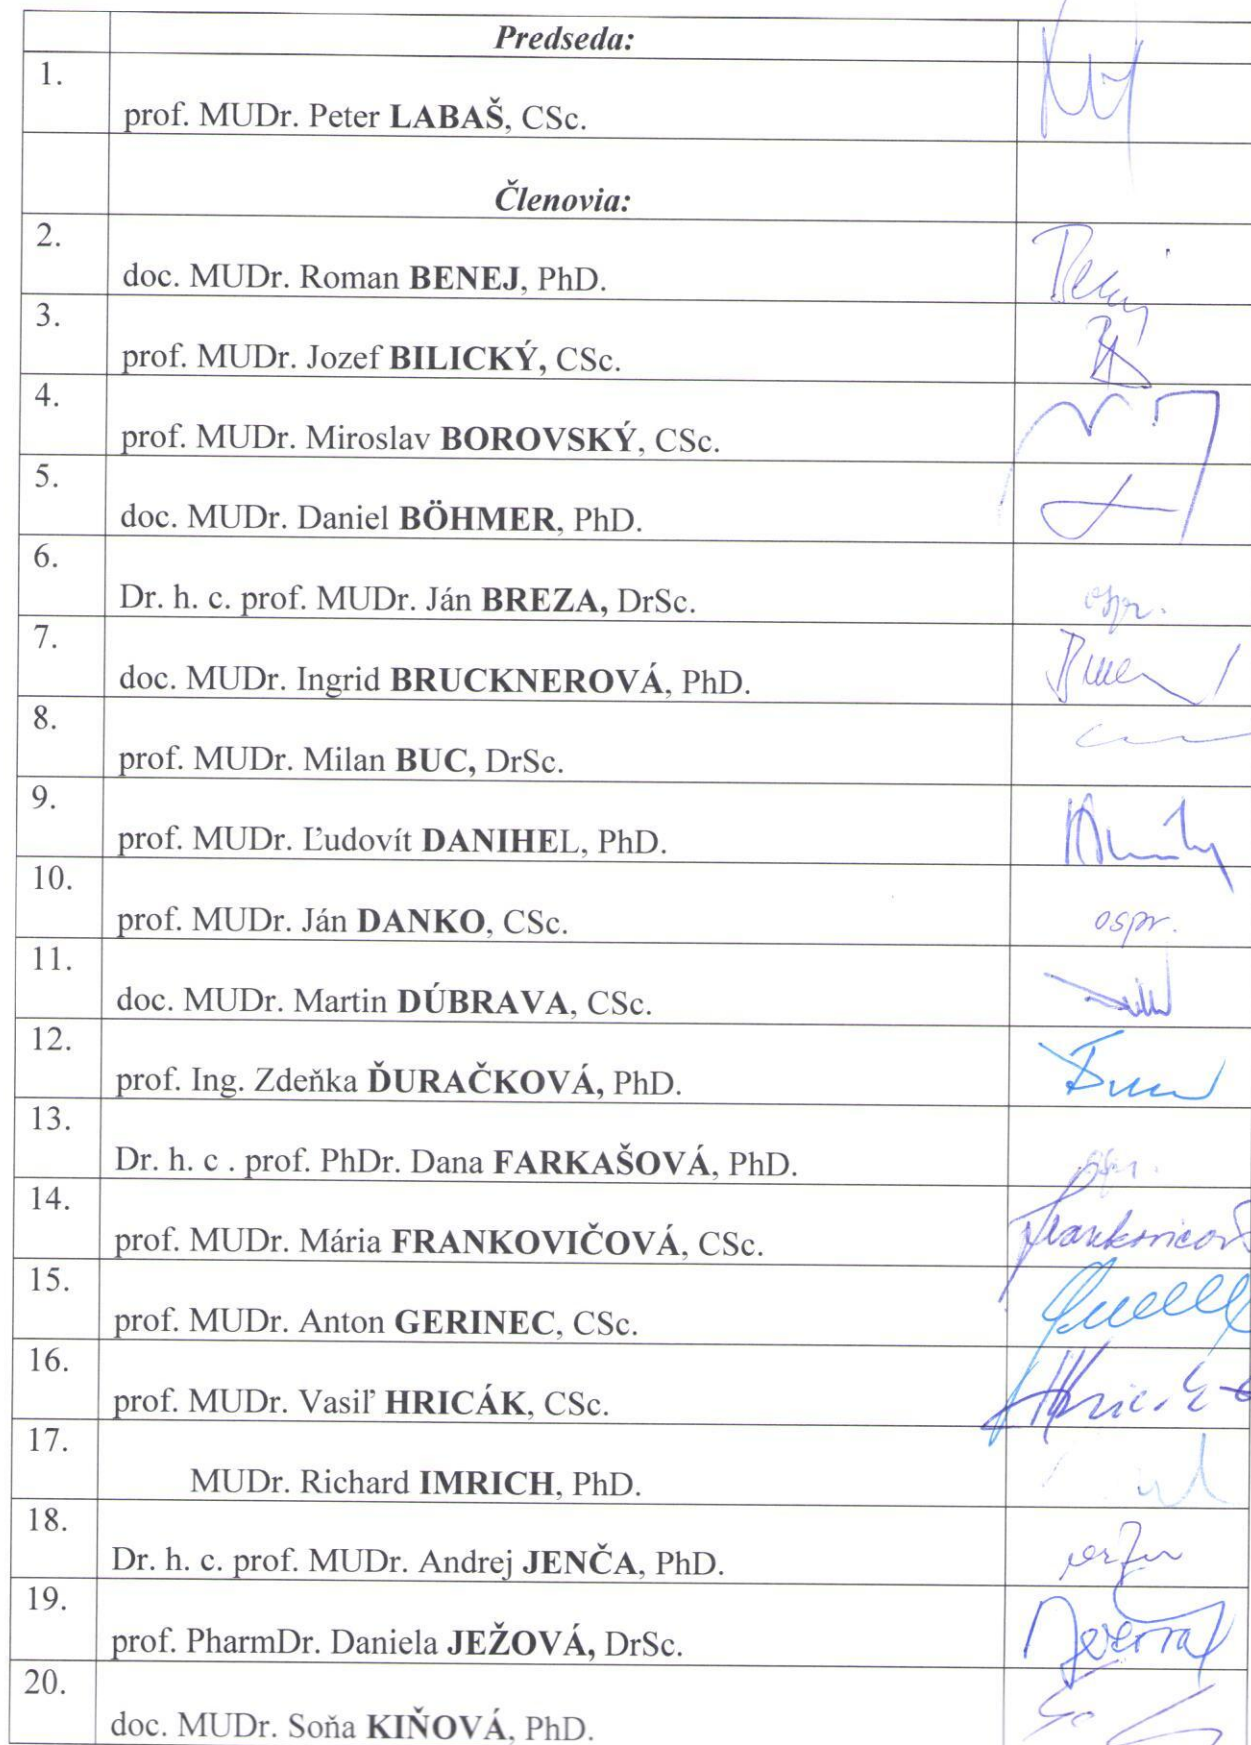 Predseda:
1.
prof. MUDr. Peter LABAŠ, CSc.
Členovia:
2.
doc. MUDr. Roman BENEJ, PhD.
3.
prof. MUDr. Jozef BILICKÝ, CSc.
4.
prof. MUDr. Miroslav BOROVSKÝ, CSc.
5.
doc. MUDr. Daniel BÖHMER, PhD.
6.
Dr. h. c. prof. MUDr. Ján BREZA, DrSc. ospr.
7.
doc. MUDr. Ingrid BRUCKNEROVÁ, PhD.
8.
prof. MUDr. Milan BUC, DrSc.
9.
prof. MUDr. Ľudovít DANIHEL, PhD.
10.
prof. MUDr. Ján DANKO, CSc. ospr.
11.
doc. MUDr. Martin DÚBRAVA, CSc.
12.
prof. Ing. Zdeňka ĎURAČKOVÁ, PhD.
13.
Dr. h. c . prof. PhDr. Dana FARKAŠOVÁ, PhD. ospr.
14.
prof. MUDr. Mária FRANKOVIČOVÁ, CSc.
15.
prof. MUDr. Anton GERINEC, CSc.
16.
prof. MUDr. Vasiľ HRICÁK, CSc.
17.
MUDr. Richard IMRICH, PhD.
18.
Dr. h. c. prof. MUDr. Andrej JENČA, PhD.
19.
prof. PharmDr. Daniela JEŽOVÁ, DrSc.
20.
doc. MUDr. Soňa KIŇOVÁ, PhD.